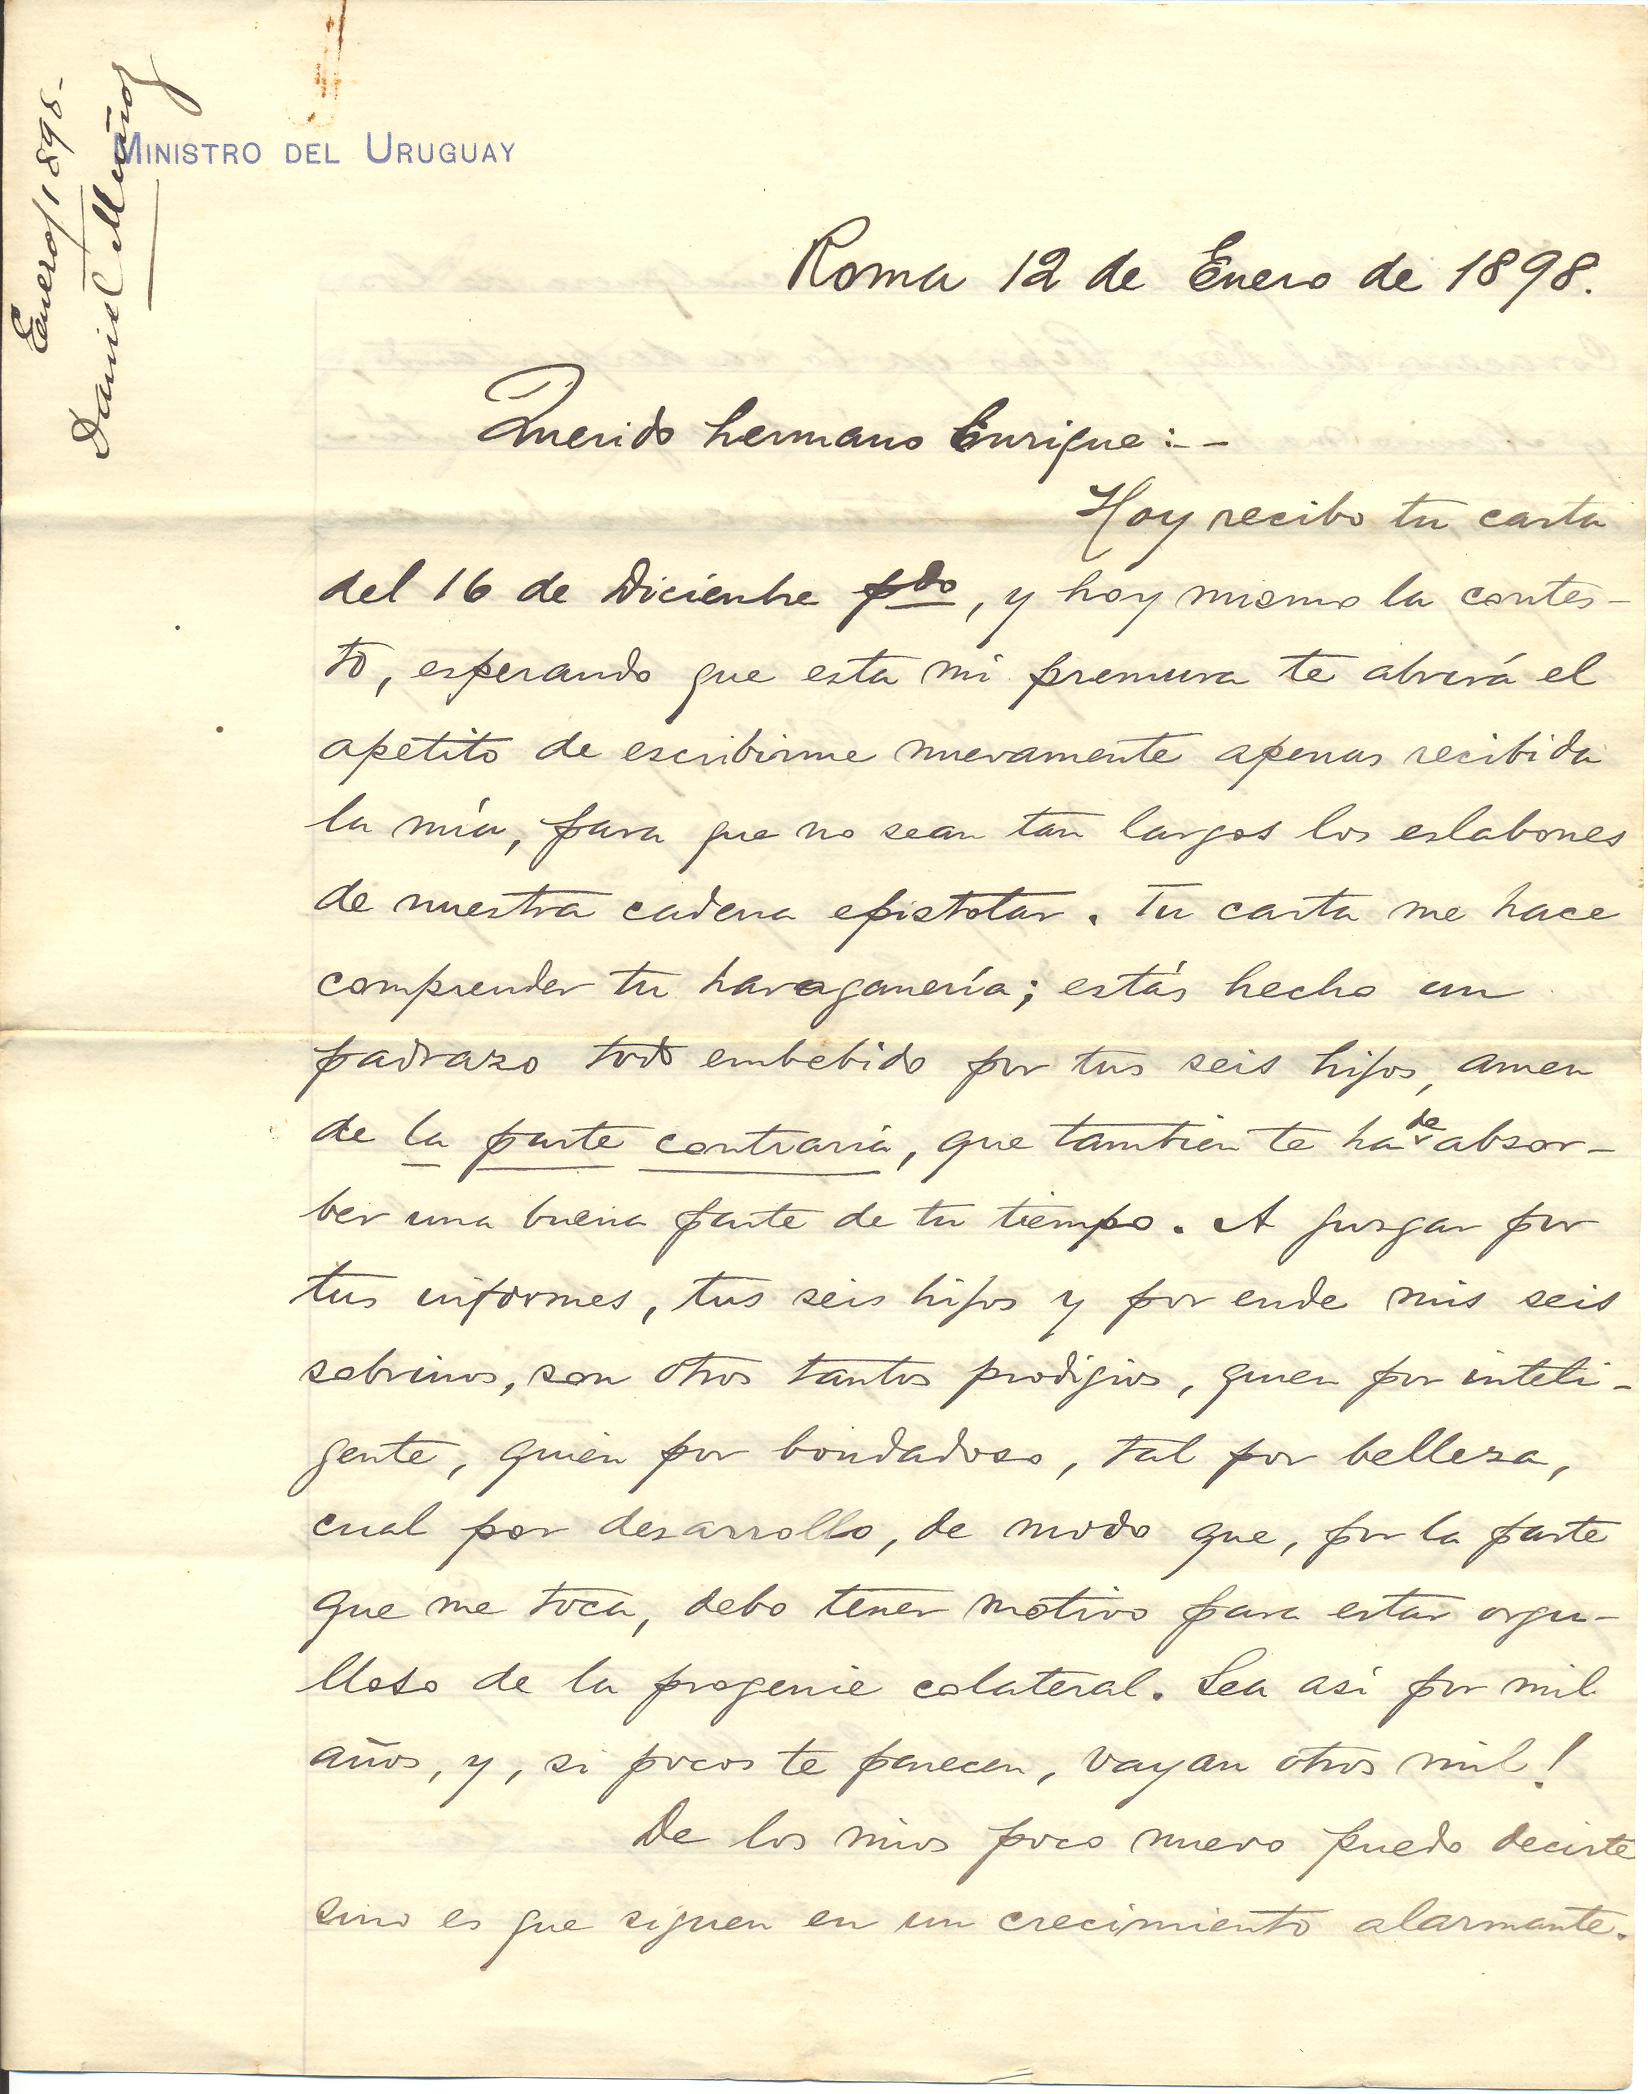 Enero/1898-
Daniel Muñoz
MINISTRO DEL URUGUAY
Roma 12 de Enero de 1898.
Querido hermano Enrique:--
Hoy recibo tu carta
del 16 de Diciembre pdo, y hoy mismo la contes-
to, esperando que esta mi premura te abrirá el
apetito de escribirme nuevamente apenas recibida
la mía, para que no sean tan largos los eslabones
de nuestra cadena epistolar. Tu carta me hace
comprender tu haraganería; estás hecho un
padrazo todo embebido por tus seis hijos, amen
de la parte contraria, que tambien te ha de absor-
ber una buena parte de tu tiempo. A juzgar por
tus informes, tus seis hijos y por ende mis seis
sobrinos, son otros tantos prodigios, quien por inteli-
gente, quien por bondadoso, tal por belleza,
cual por desarrollo, de modo que, por la parte
que me toca, debo tener motivo para estar orgu-
lloso de la progenie colateral. Sea así por mil
años, y, si pocos te parecen, vayan otros mil!
De los mios poco nuevo puedo decirte
sino es que siguen en un crecimiento alarmante.